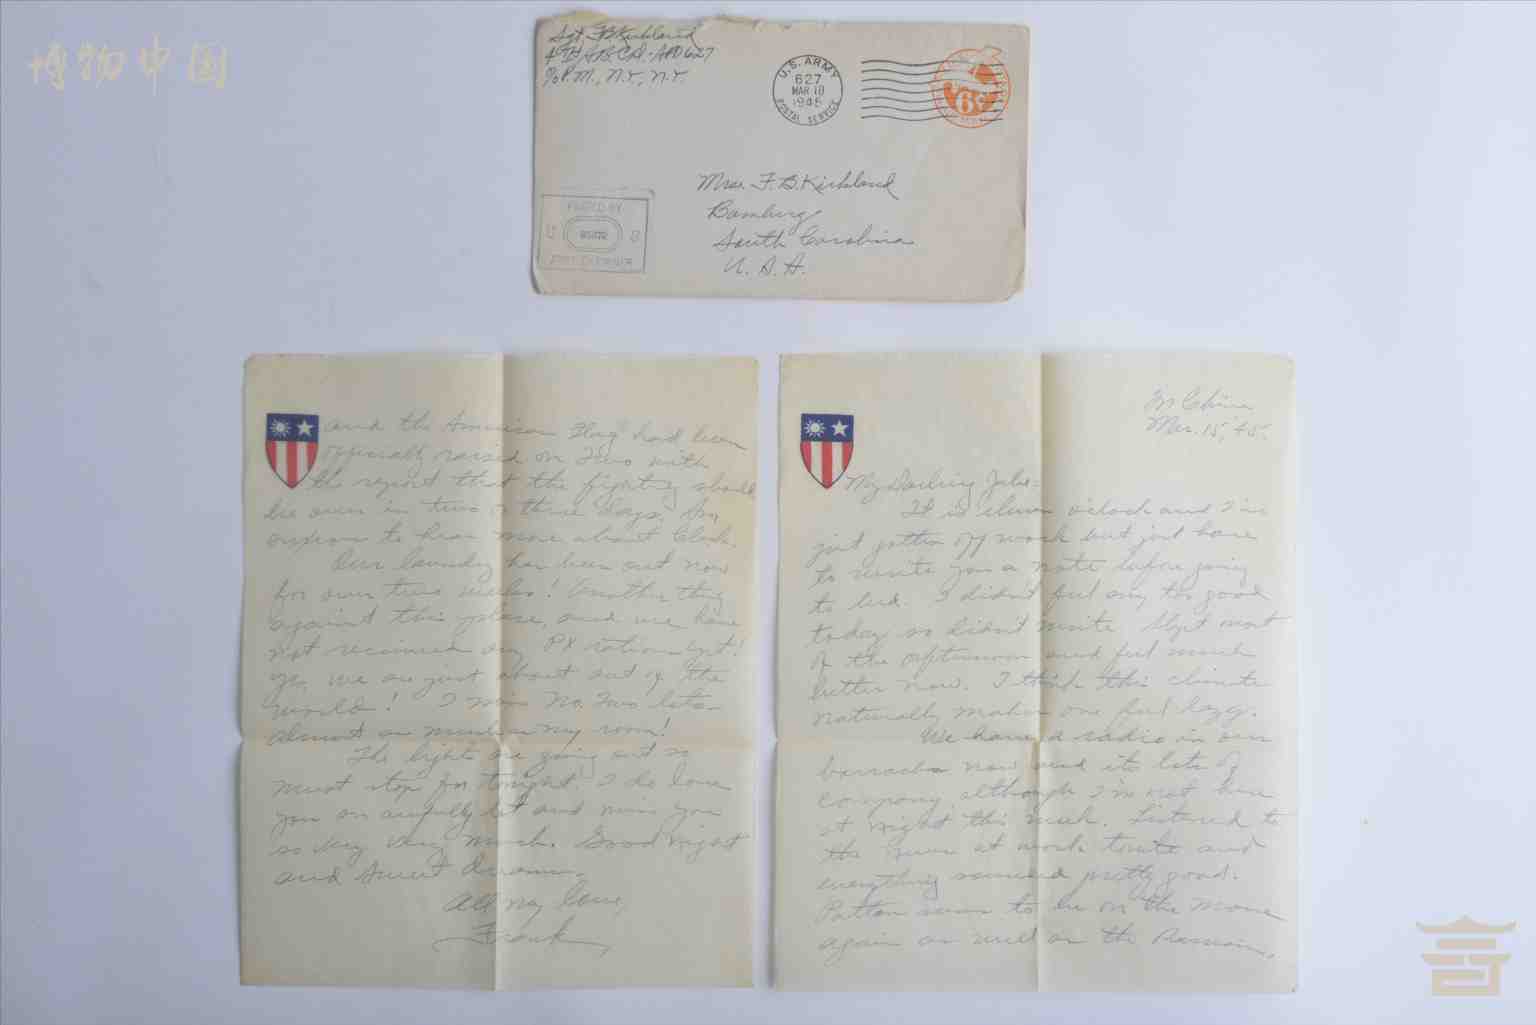 博物中国
Sgt. F.B. Kirkland
APO 627
c/o P.M., N.Y., N.Y.
U.S. ARMY
627
MAR 18
1945
POSTAL SERVICE
6c
Mrs. F. B. Kirkland
Bamburg
South Carolina
U. S. A.
PASSED BY
U S
ARMY EXAMINER
In China
Mar. 15, 45.
My Darling
It is eleven o'clock and I've
just gotten off work but just have
to write you a note before going
to bed. I didn't feel any too good
today so didn't write. Slept most
of the afternoon and feel much
better now. I think this climate
naturally makes one feel lazy.
We have a radio in our
barracks now and its lots of
company, although I'm not here
at night this week. Listened to
the news at work tonite and
everything sounded pretty good.
Patton seems to be on the move
again as well as the Russians,
and the American Flag had been
officially raised on Iwo with
the report that the fighting should
be over in two or three days. Am
anxious to hear more about
Our laundry has been out now
for over two weeks! Another thing
against this place, and we have
not received any PX rations yet!
Yes, we are just about out of the
world! I miss No. Two lots
almost as much as my room!
The lights are going out so
must stop for tonight. I do love
you an awfully lot and miss you
so very very much. Good night
and sweet dreams.
All my love,
Frank